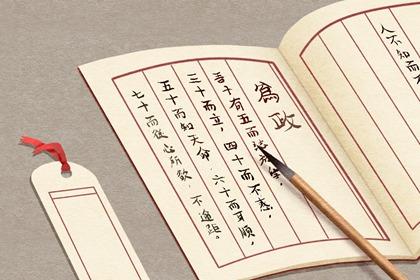 人不知而
為政
吾十有五而
三十而立,四十而不惑,
五十而知天命,六十而耳順,
七十而從心所欲,不逾距。